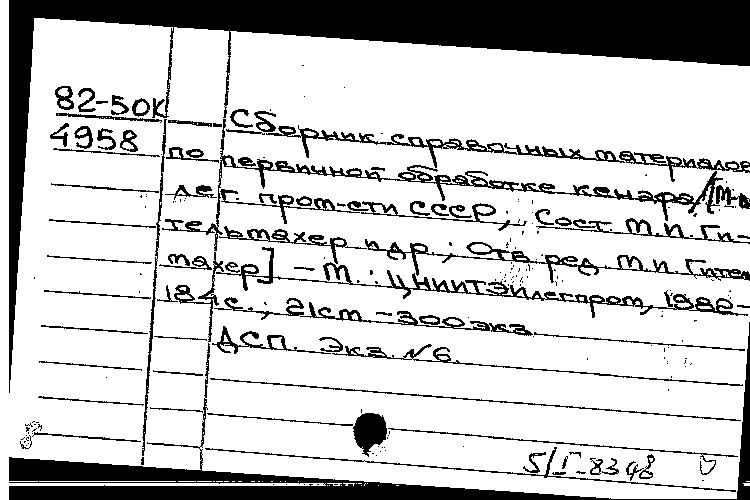 82-50К
4958
Сборник справочных материалов
по первичной обработке кенафа/[М-во
лег. пром-сти СССР; Сост. М.И. Ги-
тельмахер и др.; Отв. ред. М.И. Гитель-
махер] – М.: ЦНИИТЭИлегпром, 1980-
184с.; 21см. – 300 экз.
ДСП. Экз. №6.
5/I-8348